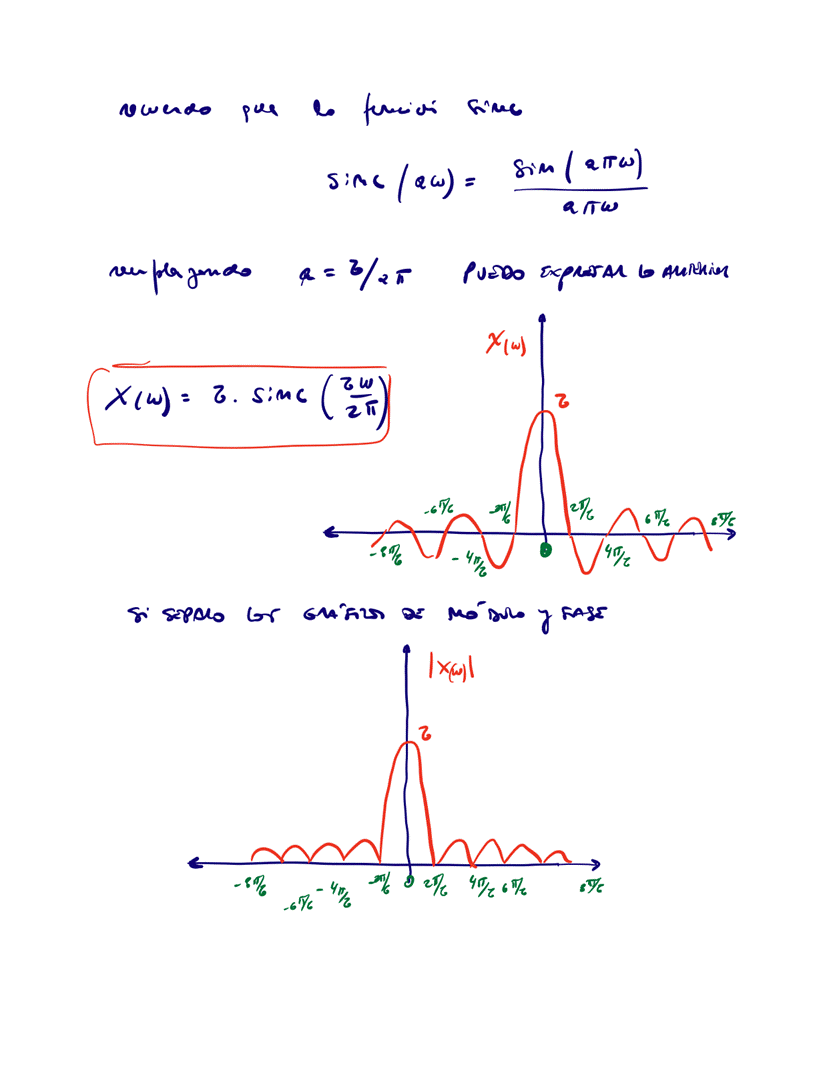 recuerdo que la función sinc
sinc(aω) = sin(aπω) / aπω
remplazando a = τ/2π PUEDO EXPRESAR lo ANTERIOR
X(ω)
X(ω) = τ. sinc (τω/2π)
τ
-6π/τ -2π/τ 2π/τ 6π/τ 8π/τ
-8π/τ -4π/τ 0 4π/τ
SI SEPARO LOS GRÁFICOS DE MÓDULO y FASE
|X(ω)|
τ
-8π/τ -6π/τ -4π/τ -2π/τ 0 2π/τ 4π/τ 6π/τ 8π/τ